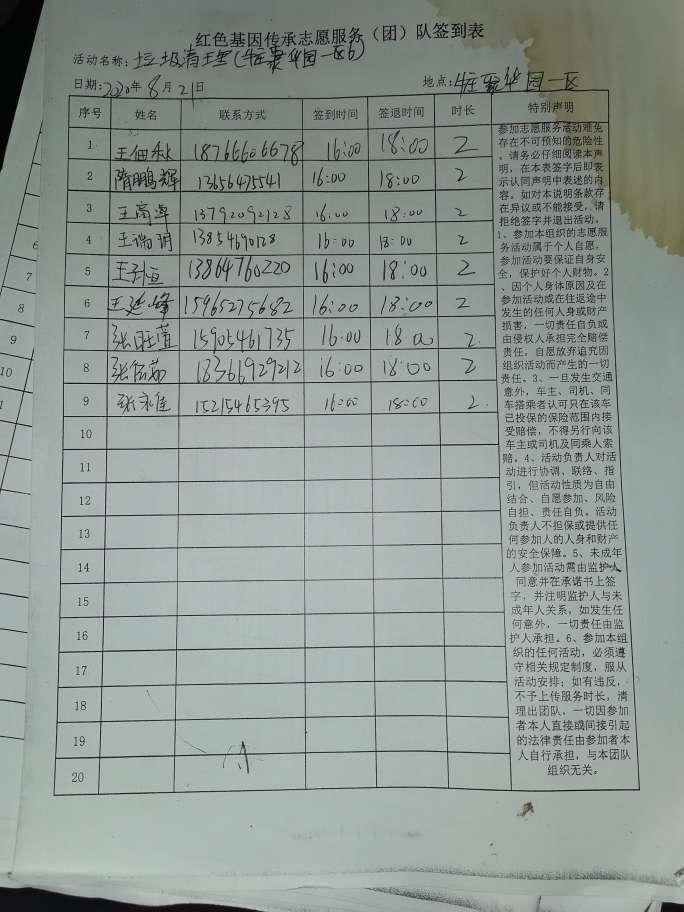 红色基因传承志愿服务（团）队签到表
活动名称：垃圾清理(华园一区)
日期：2020年8月21日 地点：华园一区
序号 姓名 联系方式 签到时间 签退时间 时长 特别声明
1 王 18766606678 16:00 18:00 2
2 隋鹏辉 13656475541 16:00 18:00 2
3 王高 13792092128 16:00 18:00 2
4 王瑞玥 13854690128 16:00 18:00 2
5 王 13864760220 16:00 18:00 2
6 王延峰 15965275682 16:00 18:00 2
7 张旺萱 15905461735 16:00 18:00 2
8 张茹 18366929212 16:00 18:00 2
9 张永佳 15215465395 16:00 18:00 2
10
11
12
13
14
15
16
17
18
19
20
参加志愿服务活动难免
存在不可预知的危险性
，请务必仔细阅读本声
明，在本表签字后即表
示认同声明中表述的内
容。如对本说明条款存
在异议或不能接受，请
拒绝签字并退出活动。
1、参加本组织的志愿服
务活动属于个人自愿，
参加活动要保证自身安
全，保护好个人财物。2
、因个人身体原因及在
参加活动或在往返途中
发生的任何人身或财产
损害，一切责任自负或
由侵权人承担完全赔偿
责任，自愿放弃追究因
组织活动而产生的一切
责任。3、一旦发生交通
意外，车主、司机、同
车搭乘者认可只在该车
已投保的保险范围内接
受赔偿，不得另行向该
车主或司机及同乘人索
赔。4、活动负责人对活
动进行协调、联络、指
引，但活动性质为自由
结合、自愿参加、风险
自担、责任自负。活动
负责人不担保或提供任
何参加人的人身和财产
的安全保障。5、未成年
人参加活动需由监护人
同意并在承诺书上签
字，并注明监护人与未
成年人关系，如发生任
何意外，一切责任由监
护人承担。6、参加本组
织的任何活动，必须遵
守相关规定制度，服从
活动安排；如有违反，
不予上传服务时长，清
理出团队，一切因参加
者本人直接或间接引起
的法律责任由参加者本
人自行承担，与本团队
组织无关。
6
7
8
9
10